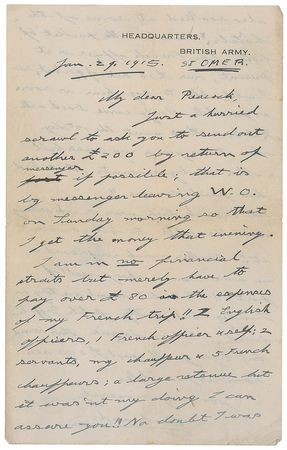 HEADQUARTERS,
BRITISH ARMY.
Jan. 29. 1915. ST OMER.
My dear Peacock,
Just a hurried
scrawl to ask you to send out
another £200 by return of
messenger
post if possible; that is
by messenger leaving W.O.
on Sunday morning so that
I get the money that evening.
I am in no financial
straits but merely have to
pay over £80 as the expenses
of my French trip!! 2 English
officers, 1 French officer & self; 2
servants, my chauffeur & 5 French
chauffeurs; a large retenue but
it wasn't my doing I can
assure you!! No doubt I was